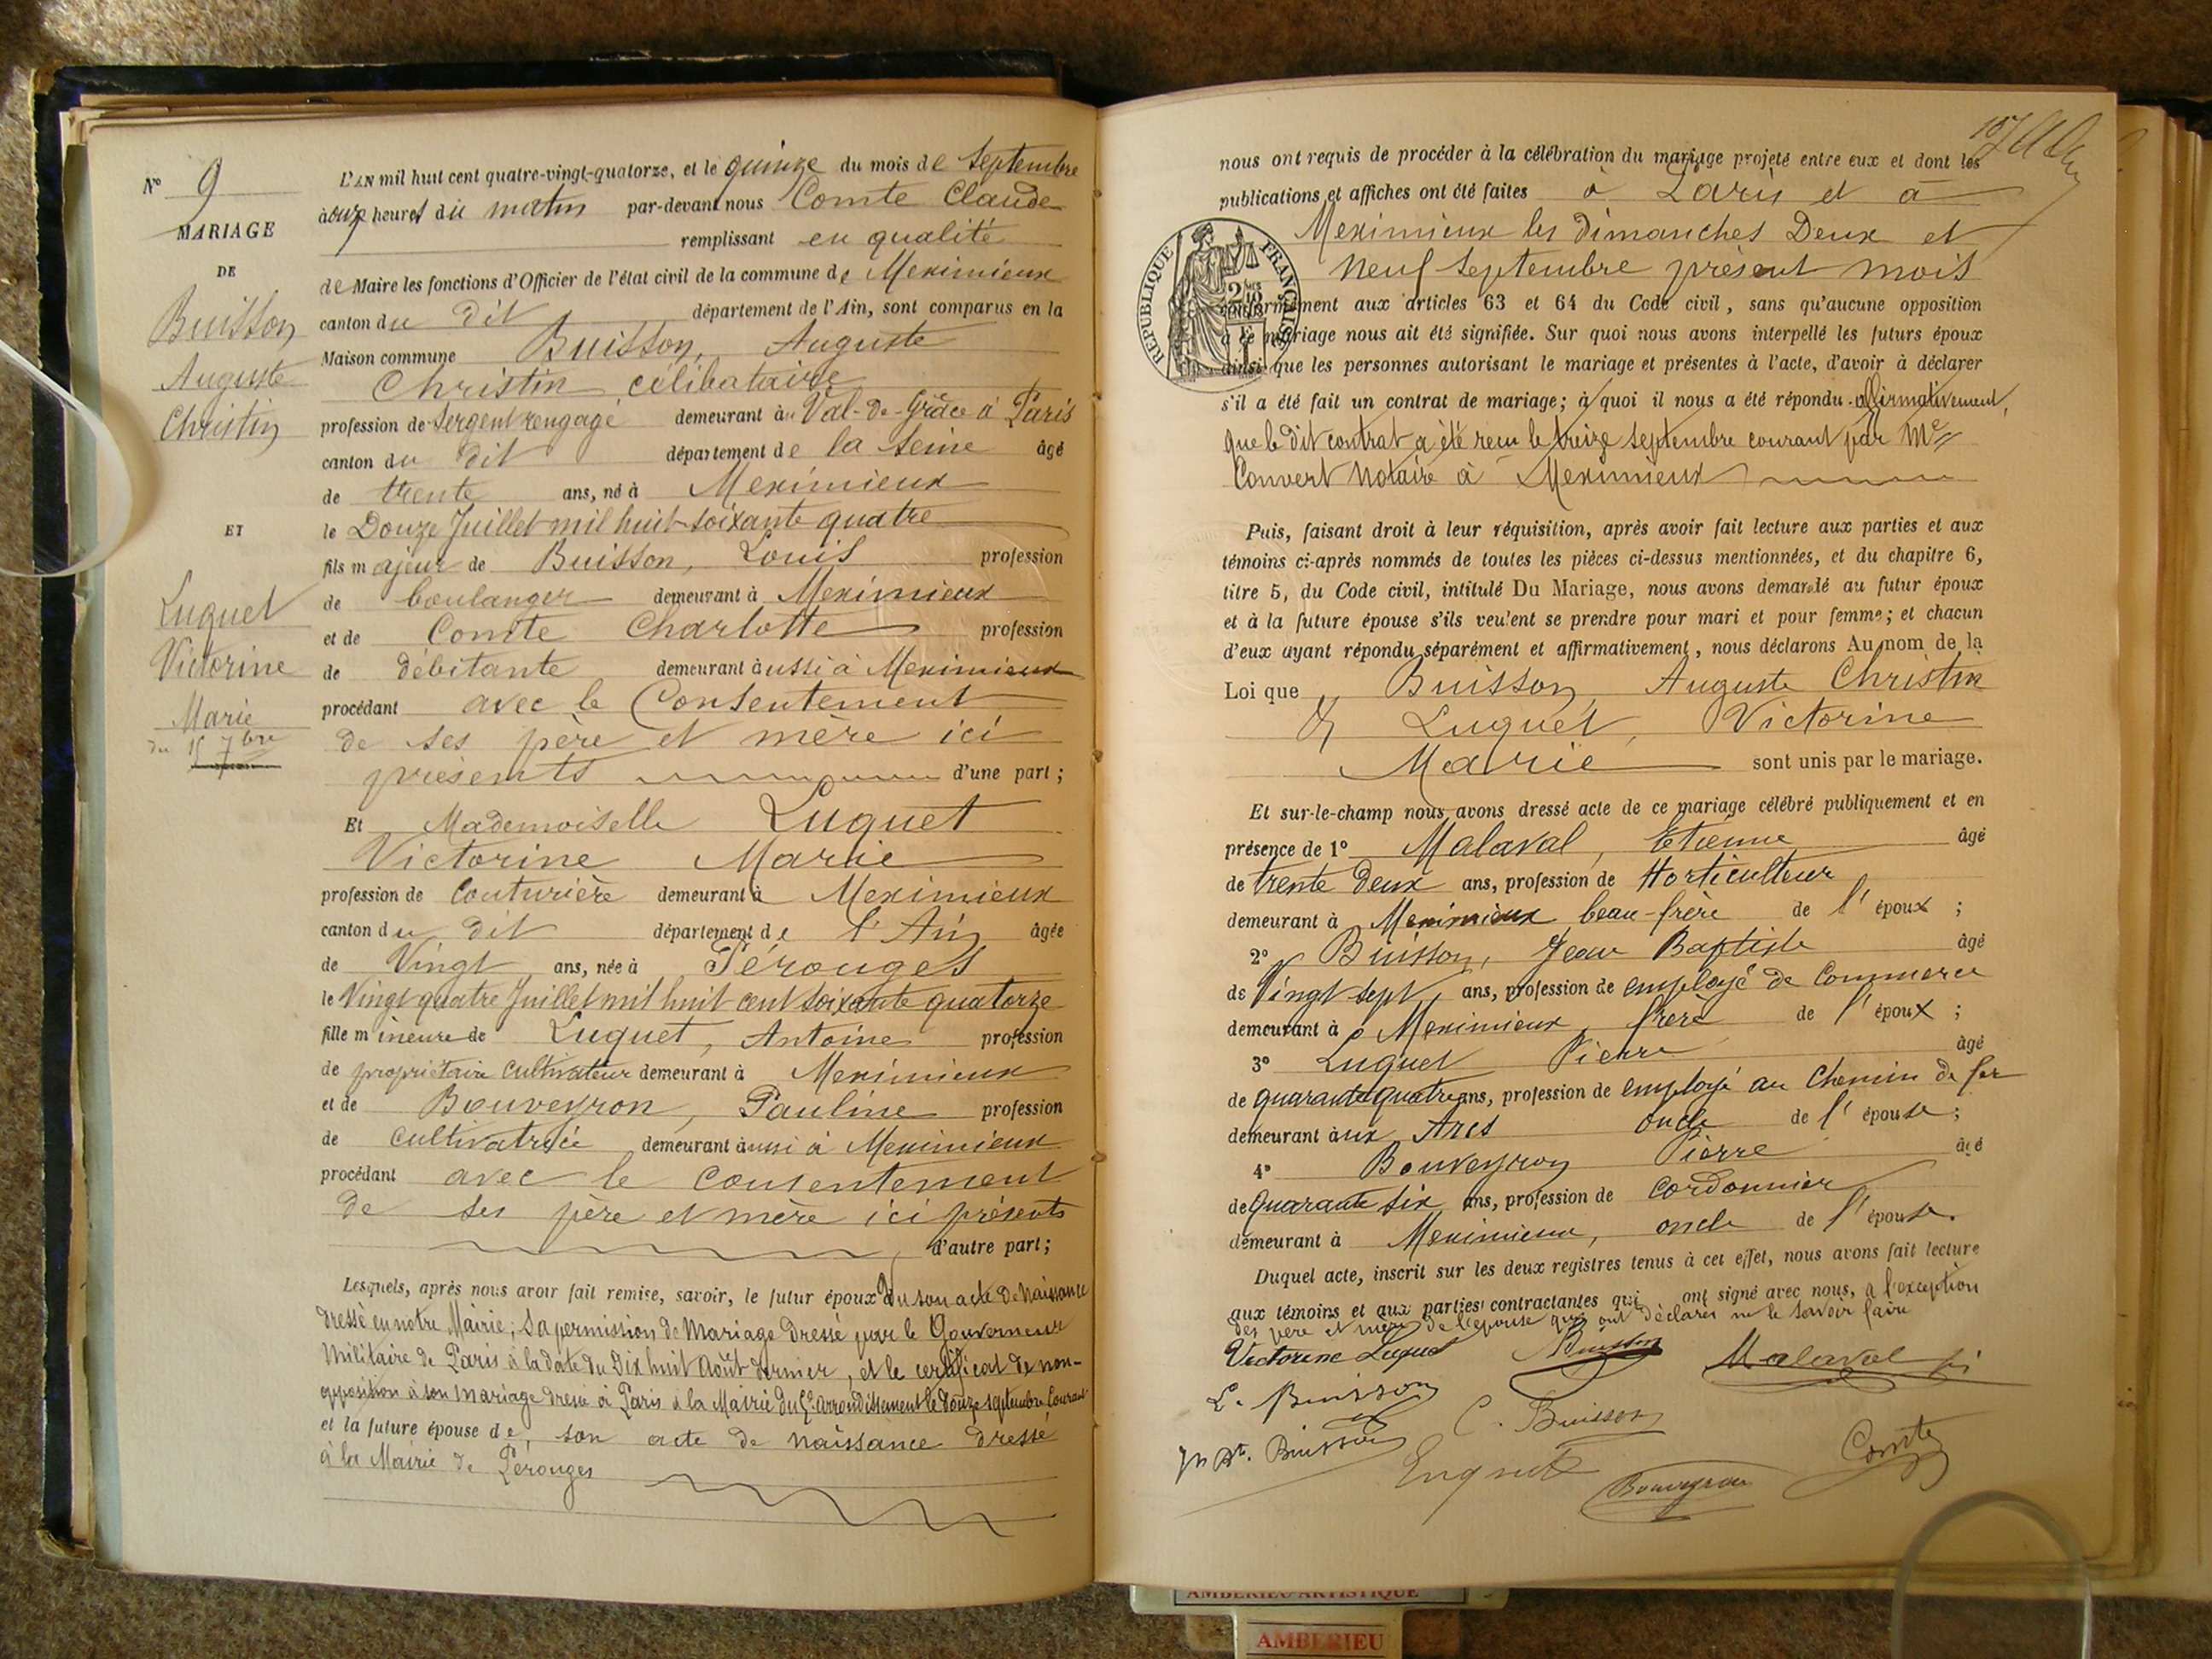 N° 9
MARIAGE
DE
Buisson
Auguste
Christin
ET
Luquet
Victorine
Marie
du 15 7bre
L'AN mil huit cent quatre-vingt-quatorze, et le quinze du mois de Septembre
à onze heures du matin par-devant nous Comte Claude
remplissant en qualité
de Maire les fonctions d'Officier de l'état civil de la commune de Meximieux
canton du dit département de l'Ain, sont comparus en la
Maison commune Buisson, Auguste
Christin célibataire
profession de Sergent rengagé demeurant au Val-de-Grâce à Paris
canton du dit département de la Seine âgé
de trente ans, né à Meximieux
le Douze Juillet mil huit soixante quatre
fils majeur de Buisson, Louis profession
de boulanger demeurant à Meximieux
et de Comte Charlotte profession
de débitante demeurant aussi à Meximieux
procédant avec le Consentement
de ses père et mère ici
présents d'une part ;
Et Mademoiselle Luquet
Victorine Marie
profession de Couturière demeurant à Meximieux
canton du dit département de l'Ain âgée
de Vingt ans, née à Pérouges
le Vingt quatre Juillet mil huit cent soixante quatorze
fille mineure de Luquet, Antoine profession
de propriétaire cultivateur demeurant à Meximieux
et de Bouveyron, Pauline profession
de cultivatrice demeurant aussi à Meximieux
procédant avec le consentement
de ses père et mère ici présents
d'autre part ;
Lesquels, après nous avoir fait remise, savoir, le futur époux du son acte de Naissance
dressé en notre Mairie ; Sa permission de Mariage dressé par le Gouverneur
Militaire de Paris à la date du Dix huit Août dernier, et le certificat de non-
opposition à son mariage dressé à Paris à la Mairie du 5e arrondissement le Douze septembre Courant
et la future épouse de, son acte de naissance dressé
à la Mairie de Pérouges
107
nous ont requis de procéder à la célébration du mariage projeté entre eux et dont les
publications et affiches ont été faites à Paris et à
Meximieux les dimanches Deux et
Neuf Septembre présent mois
RÉPUBLIQUE FRANÇAISE
conformément aux articles 63 et 64 du Code civil, sans qu'aucune opposition
à ce mariage nous ait été signifiée. Sur quoi nous avons interpellé les futurs époux
ainsi que les personnes autorisant le mariage et présentes à l'acte, d'avoir à déclarer
s'il a été fait un contrat de mariage ; à quoi il nous a été répondu affirmativement,
que le dit contrat a été reçu le treize septembre courant par Me
Convert Notaire à Meximieux
Puis, faisant droit à leur réquisition, après avoir fait lecture aux parties et aux
témoins ci-après nommés de toutes les pièces ci-dessus mentionnées, et du chapitre 6,
titre 5, du Code civil, intitulé Du Mariage, nous avons demandé au futur époux
et à la future épouse s'ils veulent se prendre pour mari et pour femme ; et chacun
d'eux ayant répondu séparément et affirmativement, nous déclarons Au nom de la
Loi que Buisson, Auguste Christin
& Luquet, Victorine
Marie sont unis par le mariage.
Et sur-le-champ nous avons dressé acte de ce mariage célébré publiquement et en
présence de 1° Malaval, Etienne âgé
de trente Deux ans, profession de Horticulteur
demeurant à Meximieux beau-frère de l'époux ;
2° Buisson, Jean Baptiste âgé
de Vingt sept, ans, profession de employé de Commerce
demeurant à Meximieux frère de l'époux ;
3° Luquet Pierre âgé
de quarante quatre ans, profession de employé au Chemin de fer
demeurant aux Arcs oncle de l'épouse ;
4° Bouveyron Pierre âgé
de Quarante six ans, profession de Cordonnier
demeurant à Meximieux, oncle de l'épouse.
Duquel acte, inscrit sur les deux registres tenus à cet effet, nous avons fait lecture
aux témoins et aux parties contractantes qui ont signé avec nous, à l'exception
des père et mère de l'épouse qui ont déclaré ne le savoir faire
Victorine Luquet Buisson Malaval
L. Buisson
C. Buisson
Jn Bt. Buisson Luquet Bouveyron Comte
AMBERIEU ARTISTIQUE
AMBERIEU